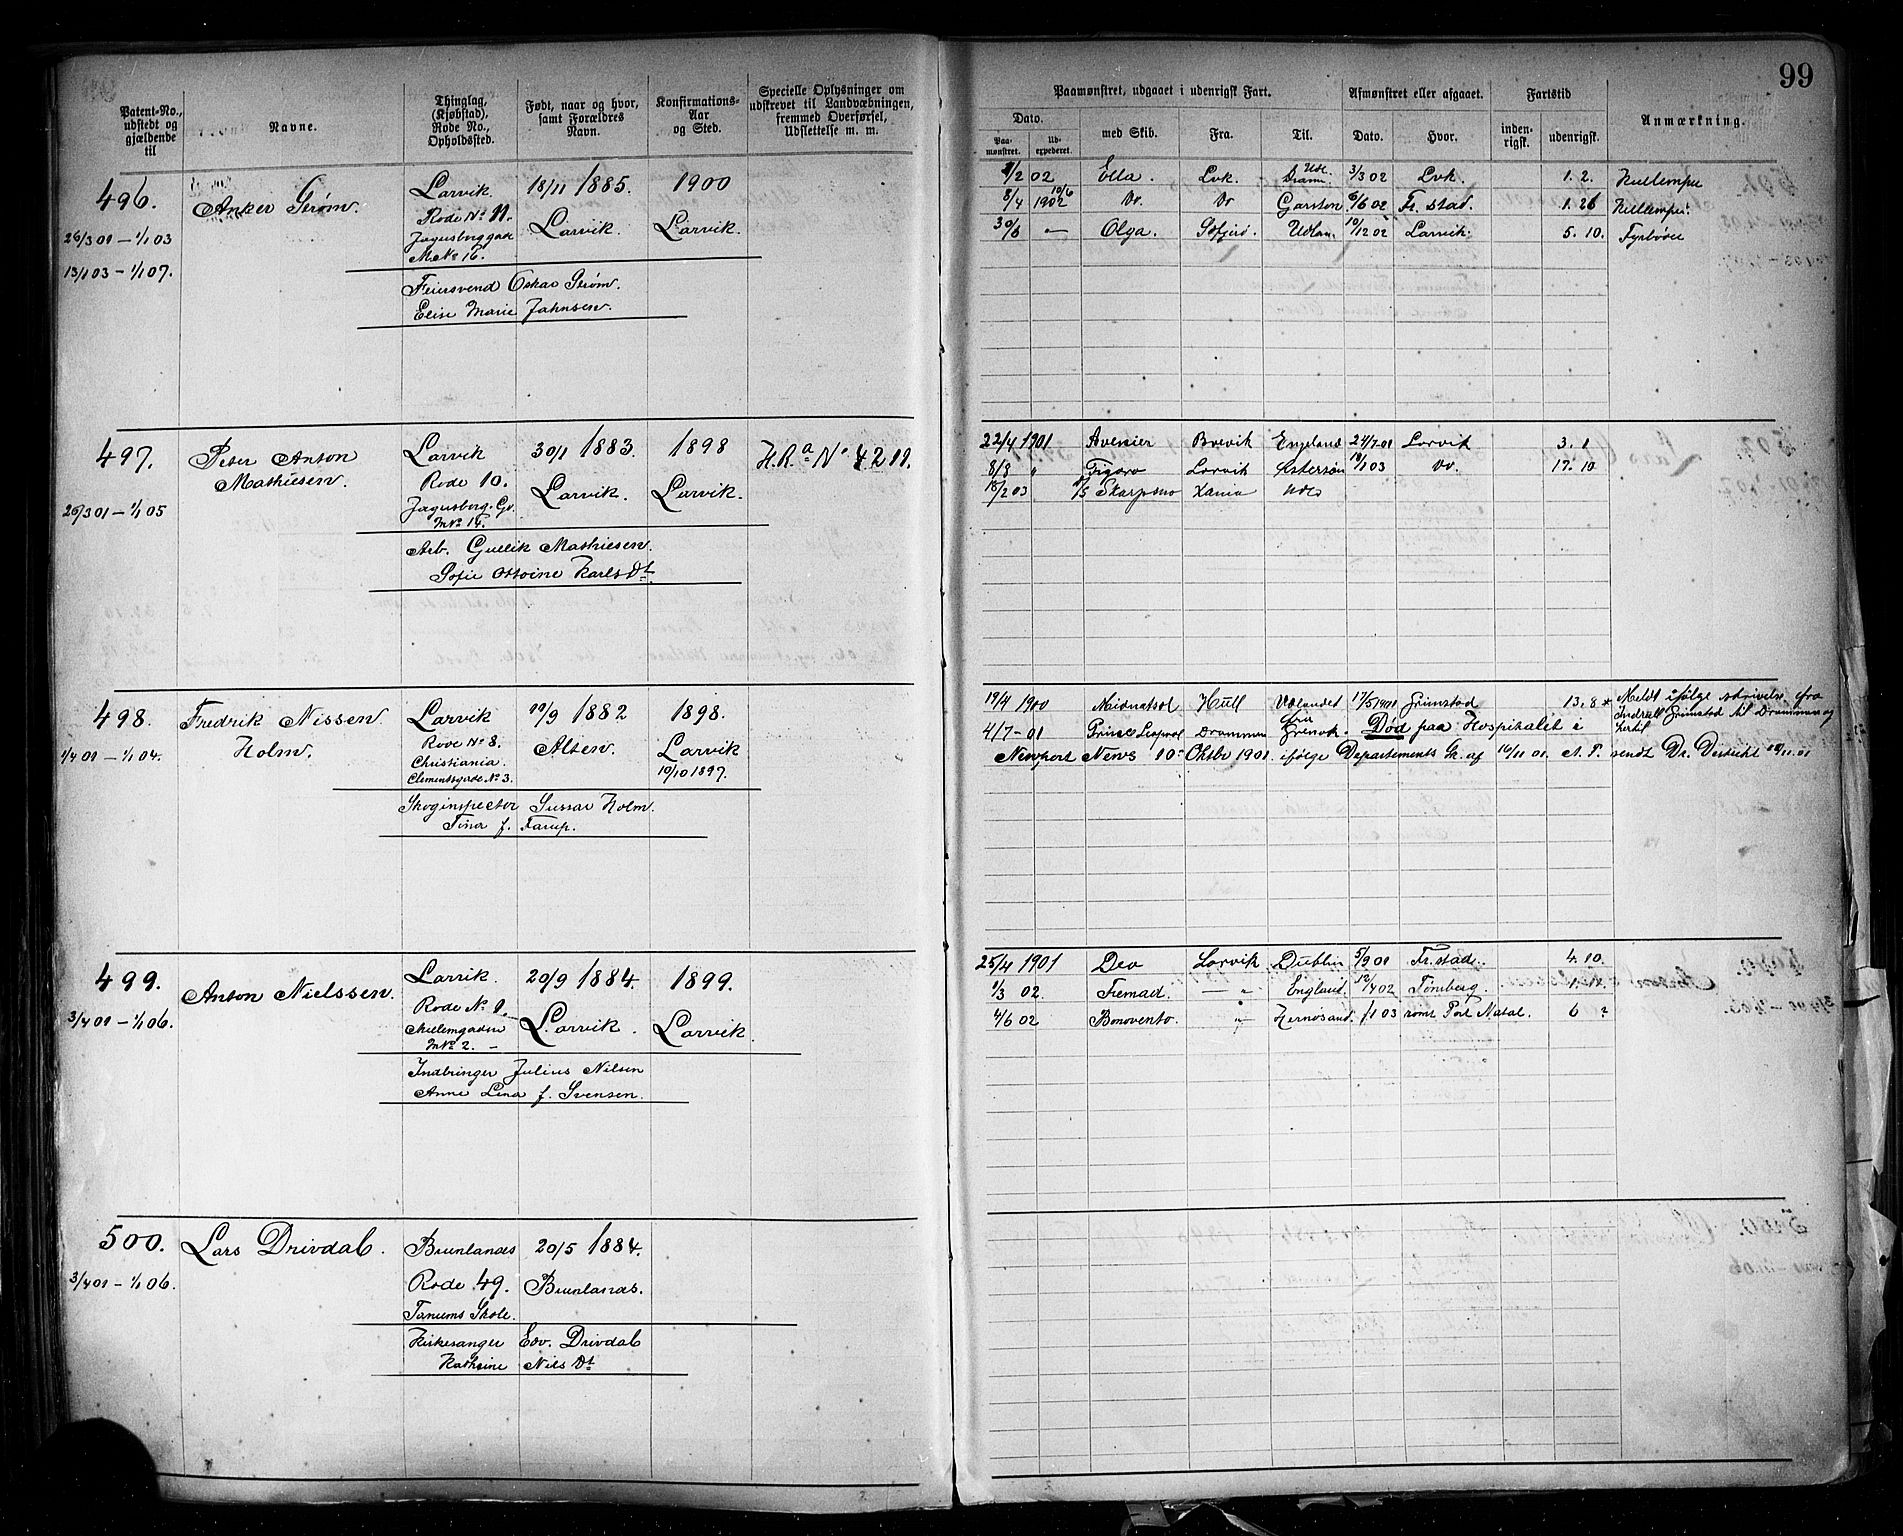 99
Patent-No., udstedt og gjældende til
Navne.
Thinglag, (Kjøbstad), Rode No., Opholdssted.
Født, naar og hvor, samt Forældres Navn.
Konfirmations-Aar og Sted.
Specielle Oplysninger om udskrevet til Landvæbningen, fremmed Overførsel, Udslettelse m. m.
Paamønstret, udgaaet i udenrigsk Fart.
Dato.
Paa-mønstret.
Ud-expederet.
med Skib.
Fra.
Til.
Afmønstret eller afgaaet.
Dato.
Hvor.
Fartstid
inden-rigsk.
udenrigsk.
Anmærkning.
496.
26/3 01 – 1/1 03
13/1 03 – 1/1 07.
Anker Strøm.
Larvik
Rode No 11.
Jegersborggade
M No 16.
18/11 1885.
Larvik.
1900
Larvik.
Feiersvend Oskar Strøm.
Elise Marie Jahnsen.
/2 02 Ella. Lvk. Dramn Udl. 3/3 02 Lvk. 1. 2. Kullemper
8/4 1902 10/6 Do. Do Garston 6/6 02 Fr. stad. 1. 26 Kullemper.
30/6 — Olga. Udlan. 10/12 02 Larvik. 5. 10. Fyrbøder
497.
26/3 01 – 1/1 05
Peter Anton
Mathiesen.
Larvik
Rode 10.
Jegersborg. Gd.
M No 14.
30/1 1883.
Larvik.
1898
Larvik.
H.R.a No 4211.
Arb. Gullik Mathiesen.
Sofie Ottoine Karls Dt.
22/4 1901 Avenier Brevik England 24/7 01 Larvik 3. 1
8/8 " Figaro Larvik Østersøn 18/1 03 Do. 17. 10
18/2 03 /5 Skarpsno Xania Udl
498.
1/4 01 – 1/1 04.
Fredrik Nissen
Holm.
Larvik
Rode No 8.
Christiania
Clementsgade No 3.
/9 1882
Alten.
1898.
Larvik
10/10 1897.
Skoginspector Gustav Holm.
Tina f. Tarup.
19/4 1900 Midnatsol Hull Udlandet 17/5 1901 Grimstad 13. 8 * Meldt ifølge skrivelse fra
Indrull. Grimstad til Drammen og hertil
4/7 - 01 Prinse Leopold Drammen fra Grenok. Død paa Hospitalet i
Newport News 10de Oktbr 1901. ifølge Departements Sk. af 16/11 01. A. P. sendt Dr. Distrikt /11 01
499.
3/4 01 – 1/1 06.
Anton Nielssen.
Larvik.
Rode No 9.
Møllemgaden
M No 2. –
20/9 1884.
Larvik.
1899.
Larvik.
Indbringer Julius Nilsen
Anne Lina f. Svensen.
25/4 1901 Deo Larvik Dublin 5/9 01 Fr. stad. 4. 10.
1/3 02. Fremad. — " England. 12/4 02 Tønsberg. 1. 11.
4/6 02 Bonovento. " Hernøsand. /1 03 rømt Port Natal. 6 ?
500.
3/4 01 – 1/1 06.
Lars Drivdal.
Brunlanæs
Rode 49.
Tanums Skole.
20/5 1884.
Brunlanæs.
Kirkesanger Edv. Drivdal
Kathrine Nils Dt.